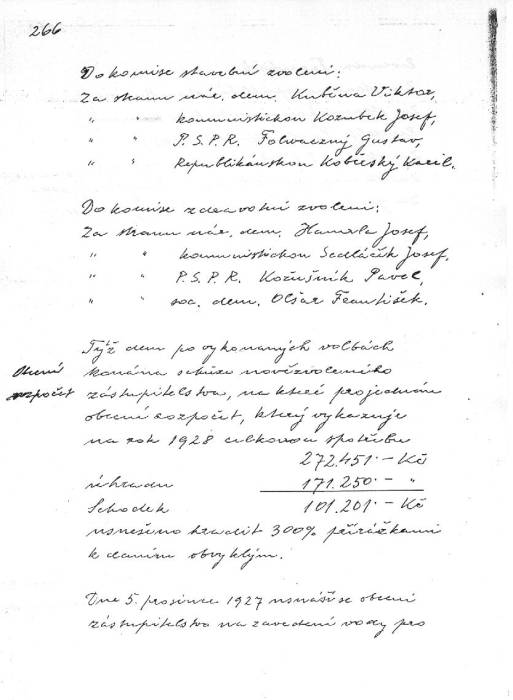 266
Do komise stavební zvoleni:
Za stranu nár. dem. Kuběna Viktor,
" " komunistickou Kozubek Josef,
" " P.S.P.R. Folwaczný Gustav,
" " Republikánskou Kobierský Karel.
Do komise zdravotní zvoleni:
Za stranu nár. dem. Hamrla Josef,
" " komunistickou Sedláčik Josef,
" " P.S.P.R. Kožušník Pavel,
" " soc. dem. Olšar František.
Týž dem po vykonaných volbách
Obecní rozpočet
konána schůze nově zvoleného
zastupitelstva, na které projednán
obecní rozpočet, který vykazuje
na rok 1928 celkovou spotřebu
272.451·– Kč
úhradu 171.250·– "
Schodek 101.201·– Kč
usneseno hradit 300% přirážkami
k daním obvyklým.
Dne 5. prosince 1927 usnáší se obecní
zástupitelstvo na zavedení vody pro